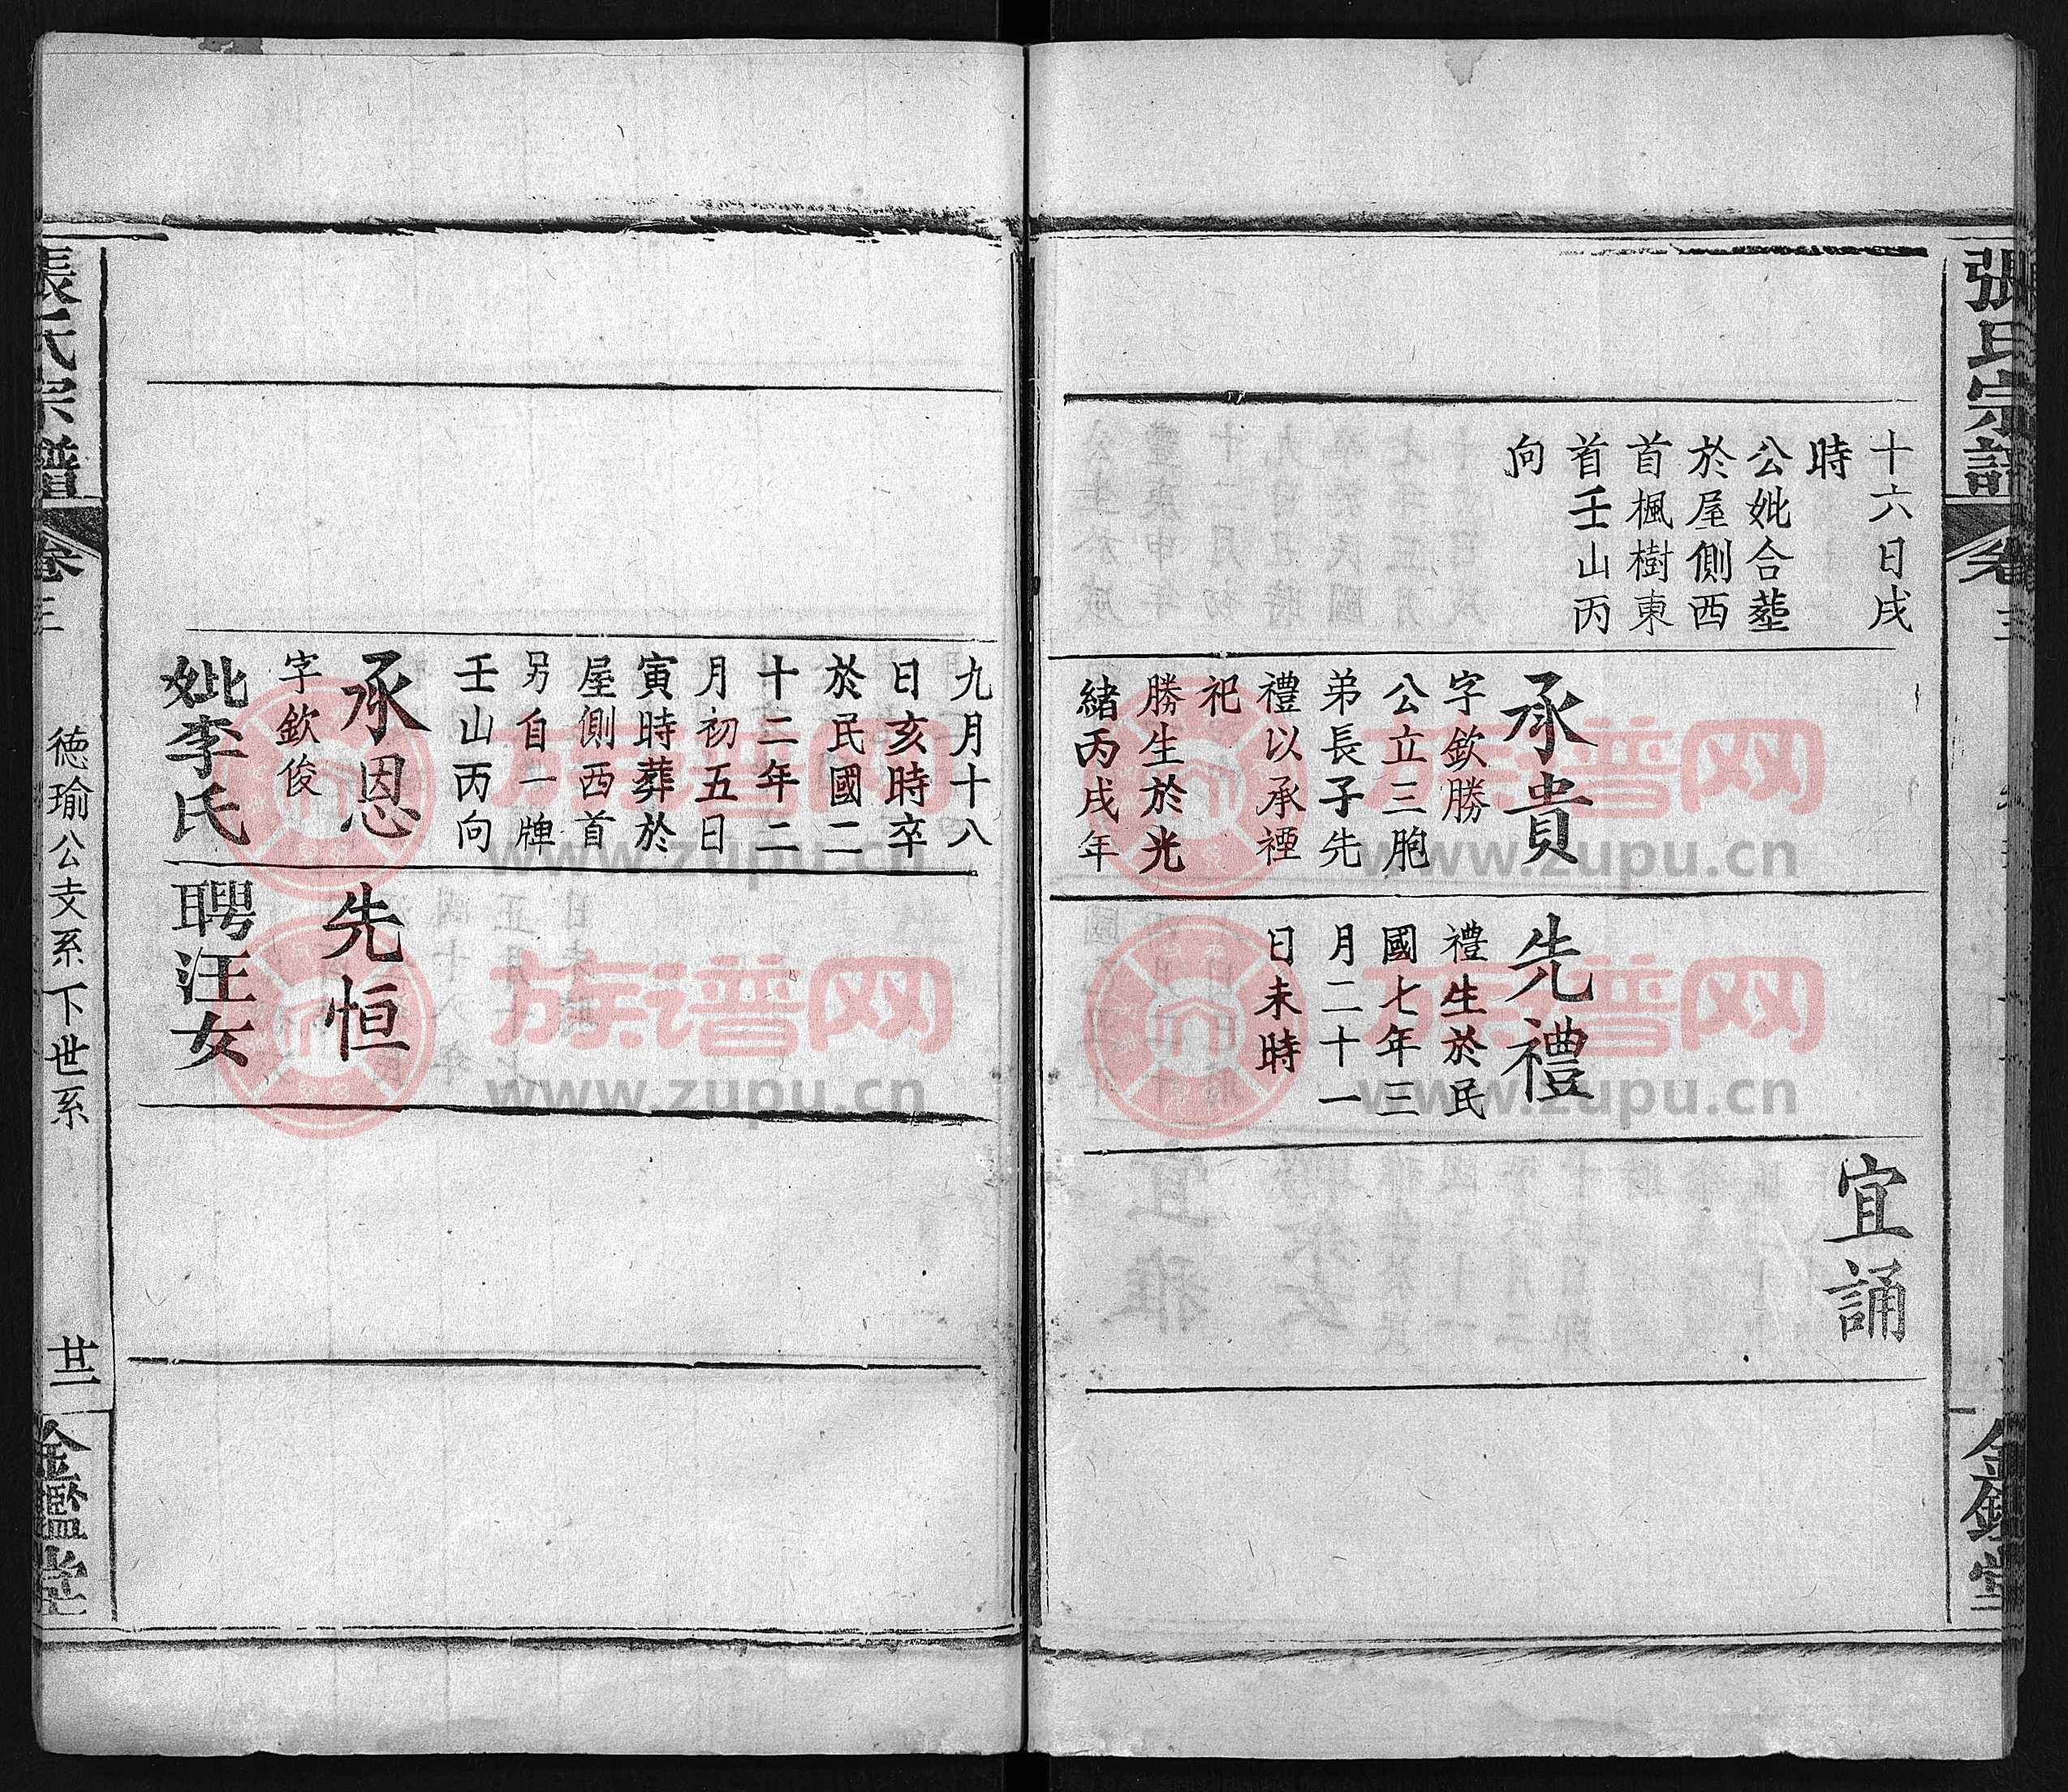 張氏宗譜
卷三
金鑑堂
十六日戌
時
公妣合塟
於屋側西
首楓樹東
首壬山丙
向
承貴
字欽勝
公立三胞
弟長子先
禮以承禋
祀
勝生於光
緒丙戌年
先禮
禮生於民
國七年三
月二十一
日未時
宜誦
九月十八
日亥時卒
於民國二
十二年二
月初五日
寅時葬於
屋側西首
另自一牌
壬山丙向
承恩
字欽俊
妣李氏
先恒
聘汪女
張氏宗譜
卷三
德瑜公支系下世系
廿二
金鑑堂
族谱网
www.zupu.cn
族谱网
www.zupu.cn
族谱网
www.zupu.cn
族谱网
www.zupu.cn